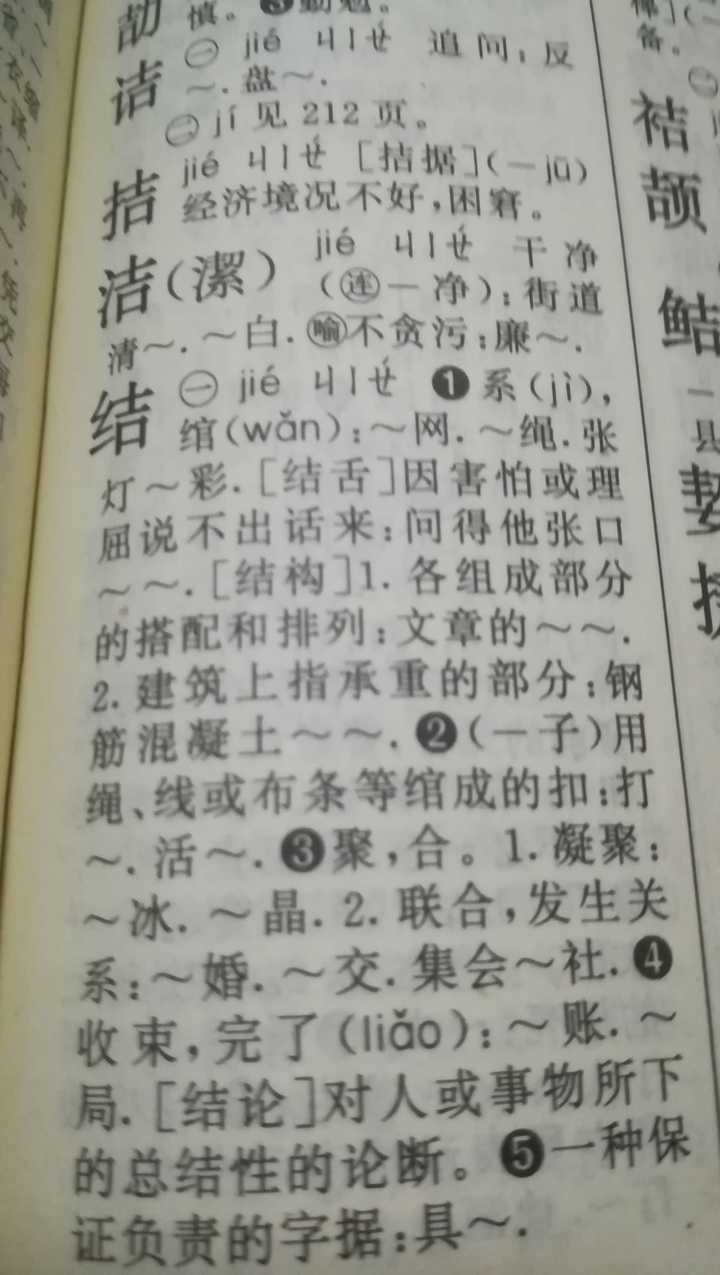 劼 慎。❸勤勉。
诘 ㊀ jié ㄐㄧㄝˊ 追问：反
～. 盘～.
㊁ jí 见 212 页。
拮 jié ㄐㄧㄝˊ [拮据](－jū)
经济境况不好，困窘。
洁(潔) jié ㄐㄧㄝˊ 干净
(㊣连－净)：街道
清～. ～白. 喻不贪污：廉～.
结 ㊀ jié ㄐㄧㄝˊ ❶系(jì)，
绾(wǎn)：～网. ～绳. 张
灯～彩. [结舌]因害怕或理
屈说不出话来：问得他张口
～～. [结构]1. 各组成部分
的搭配和排列：文章的～～.
2. 建筑上指承重的部分：钢
筋混凝土～～. ❷(－子)用
绳、线或布条等绾成的扣：打
～. 活～. ❸聚，合。1. 凝聚：
～冰. ～晶. 2. 联合，发生关
系：～婚. ～交. 集会～社. ❹
收束，完了(liǎo)：～账. ～
局. [结论]对人或事物所下
的总结性的论断。❺一种保
证负责的字据：具～.
备。
袺
颉
鲒
县